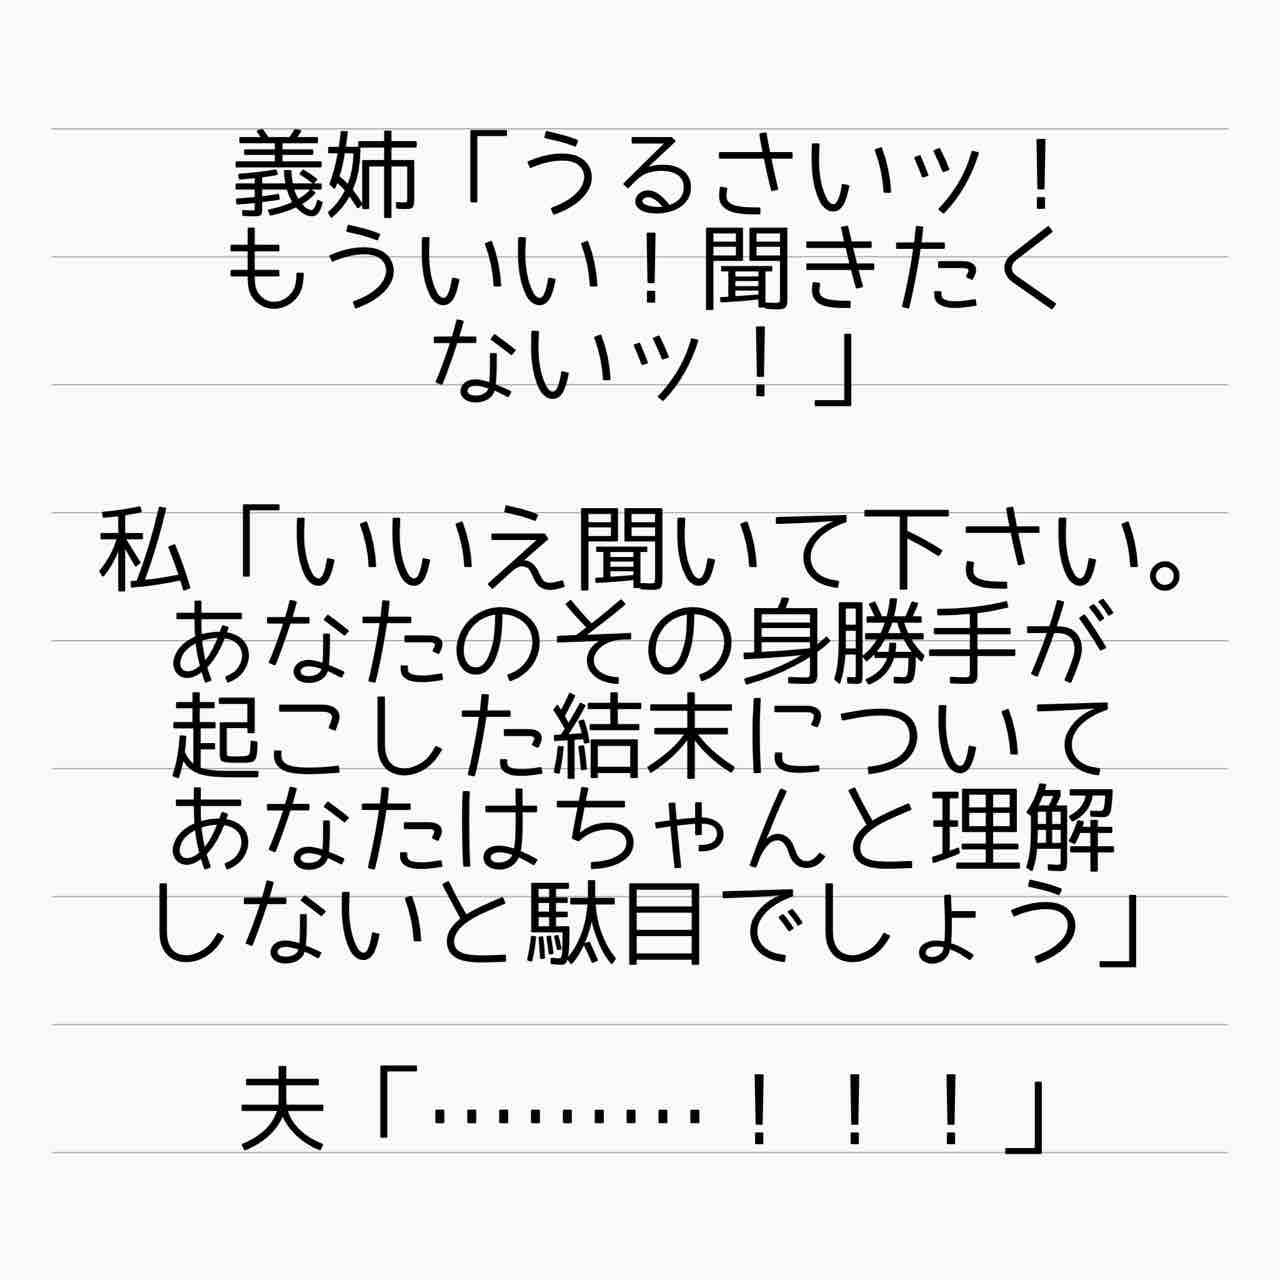 義姉「うるさいッ！
もういい！聞きたく
ないッ！」
私「いいえ聞いて下さい。
あなたのその身勝手が
起こした結末について
あなたはちゃんと理解
しないと駄目でしょう」
夫「………！！！」